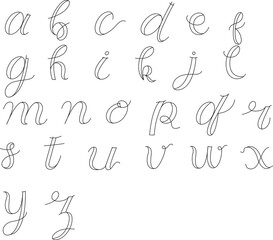 a b c d e f
g h i k j l
m n o p q r
s t u v w x
y z